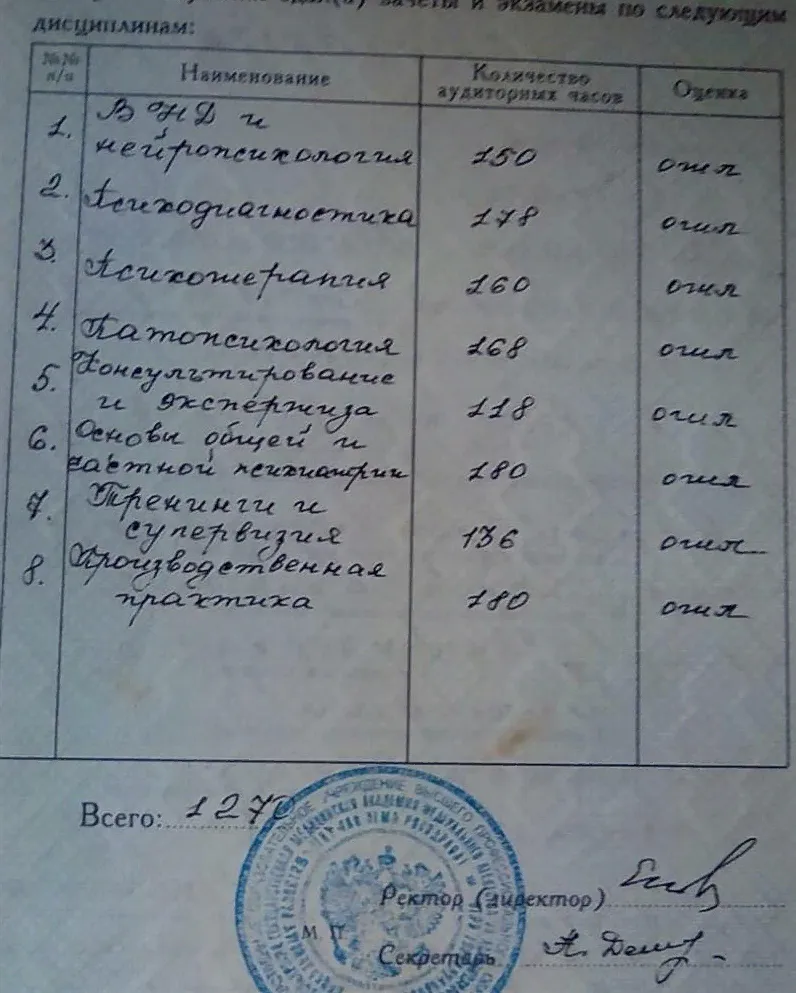 зачеты и экзамены по следующим
дисциплинам:
№№ п/п Наименование Количество аудиторных часов Оценка
1. ВНД и
нейропсихология 150 отл
2. Психодиагностика 178 отл
3. Психотерапия 160 отл
4. Патопсихология 168 отл
5. Консультирование
и экспертиза 118 отл
6. Основы общей и
частной психиатрии 180 отл
7. Тренинги и
супервизия 136 отл
8. Производственная
практика 180 отл
Всего: 1270
УЧРЕЖДЕНИЕ ВЫСШЕГО
МЕДИЦИНСКАЯ АКАДЕМИЯ ФЕДЕРАЛЬНОГО
Ректор (директор)
М. П.
Секретарь